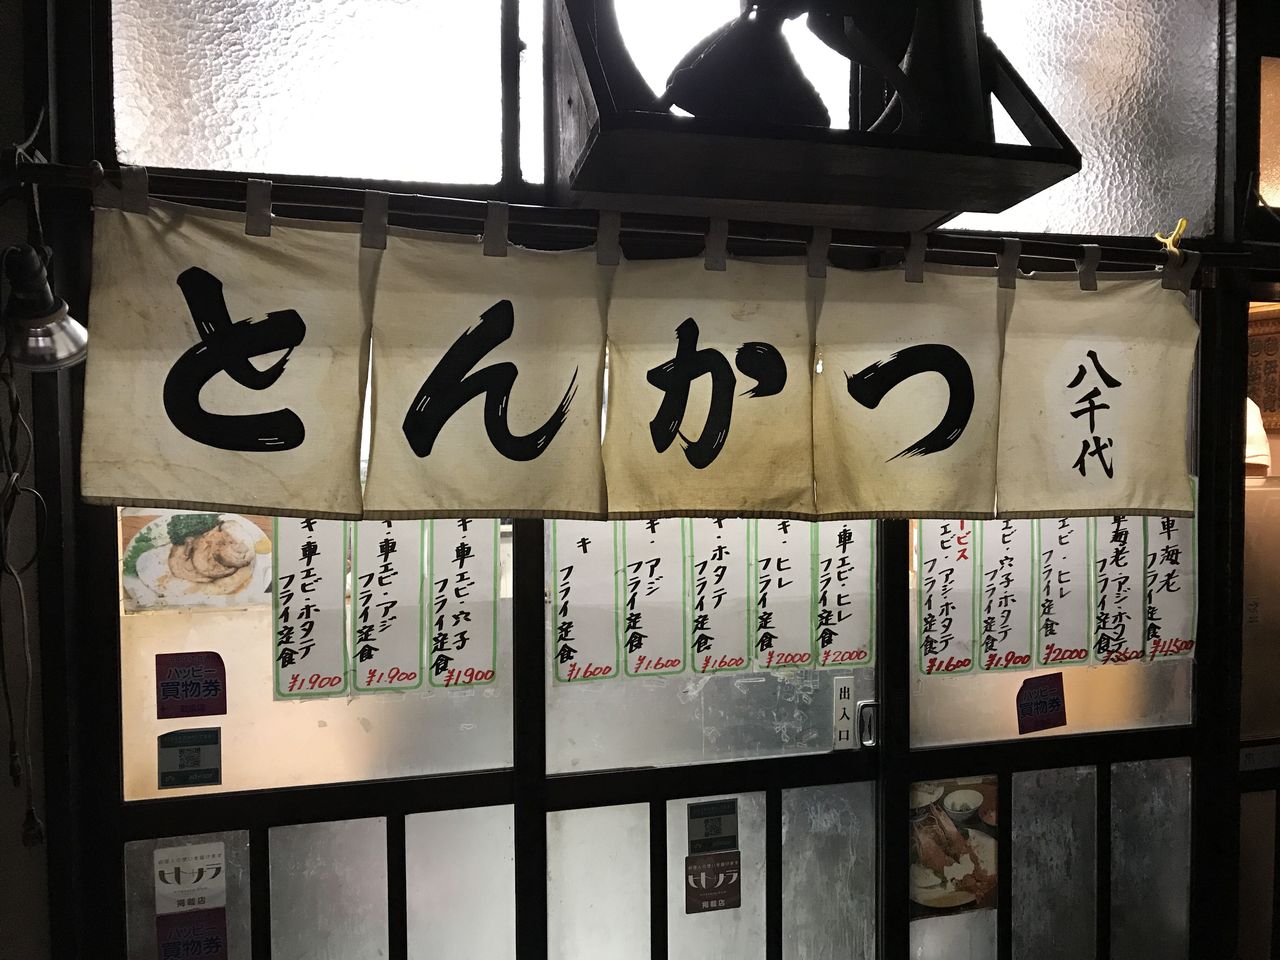 とんかつ
八千代
キ・車エビ・ホタテ
フライ定食
¥1.900
キ・車エビ・アジ
フライ定食
¥1.900
キ・車エビ・穴子
フライ定食
¥1900
キ
フライ定食
¥1.600
キ・アジ
フライ定食
¥1.600
キ・ホタテ
フライ定食
¥1.600
キ・ヒレ
フライ定食
¥2000
車エビ・ヒレ
フライ定食
¥2000
ービス
エビ・アジ・ホタテ
フライ定食
¥1.600
エビ・穴子・ホタテ
フライ定食
¥1.900
エビ・ヒレ
フライ定食
¥2000
車海老・アジ・ホタテ
フライ定食
車海老
フライ定食
出入口
ハッピー
買物券
ハッピー
買物券
ヒトサラ
掲載店
ハッピー
買物券
ヒトサラ
掲載店